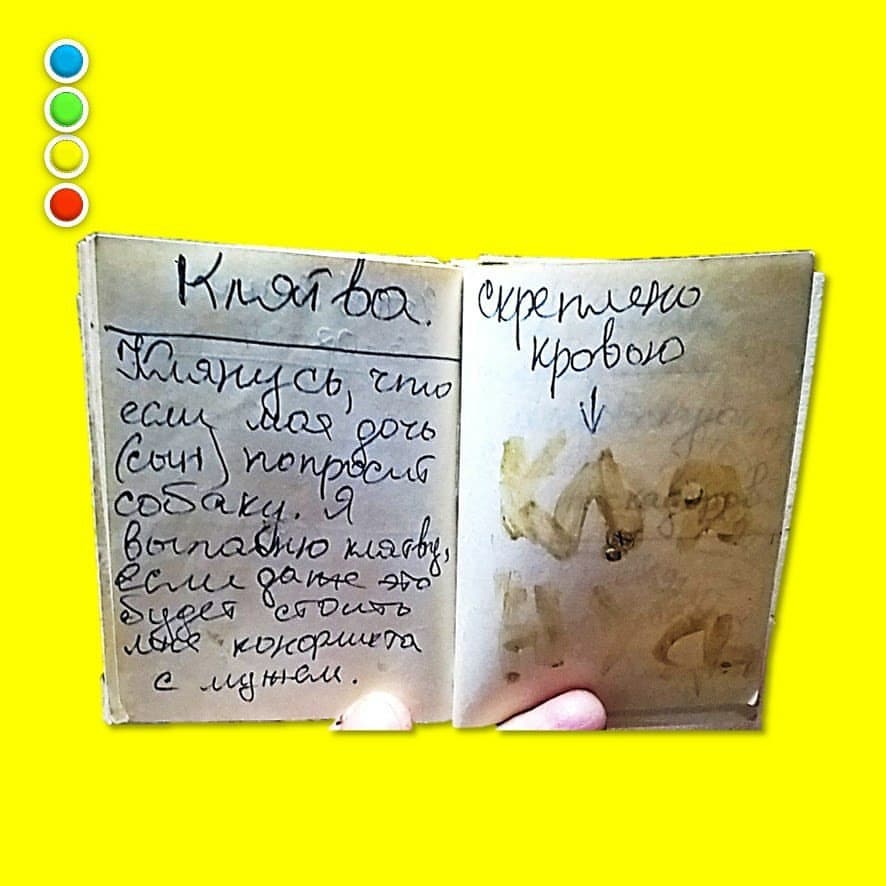 Клятва.
Клянусь, что
если моя дочь
(сын) попросит
собаку. Я
выполню клятву,
если даже это
будет стоить
мне конфликта
с мужем.
скреплено
кровью
↓
КЛЯ